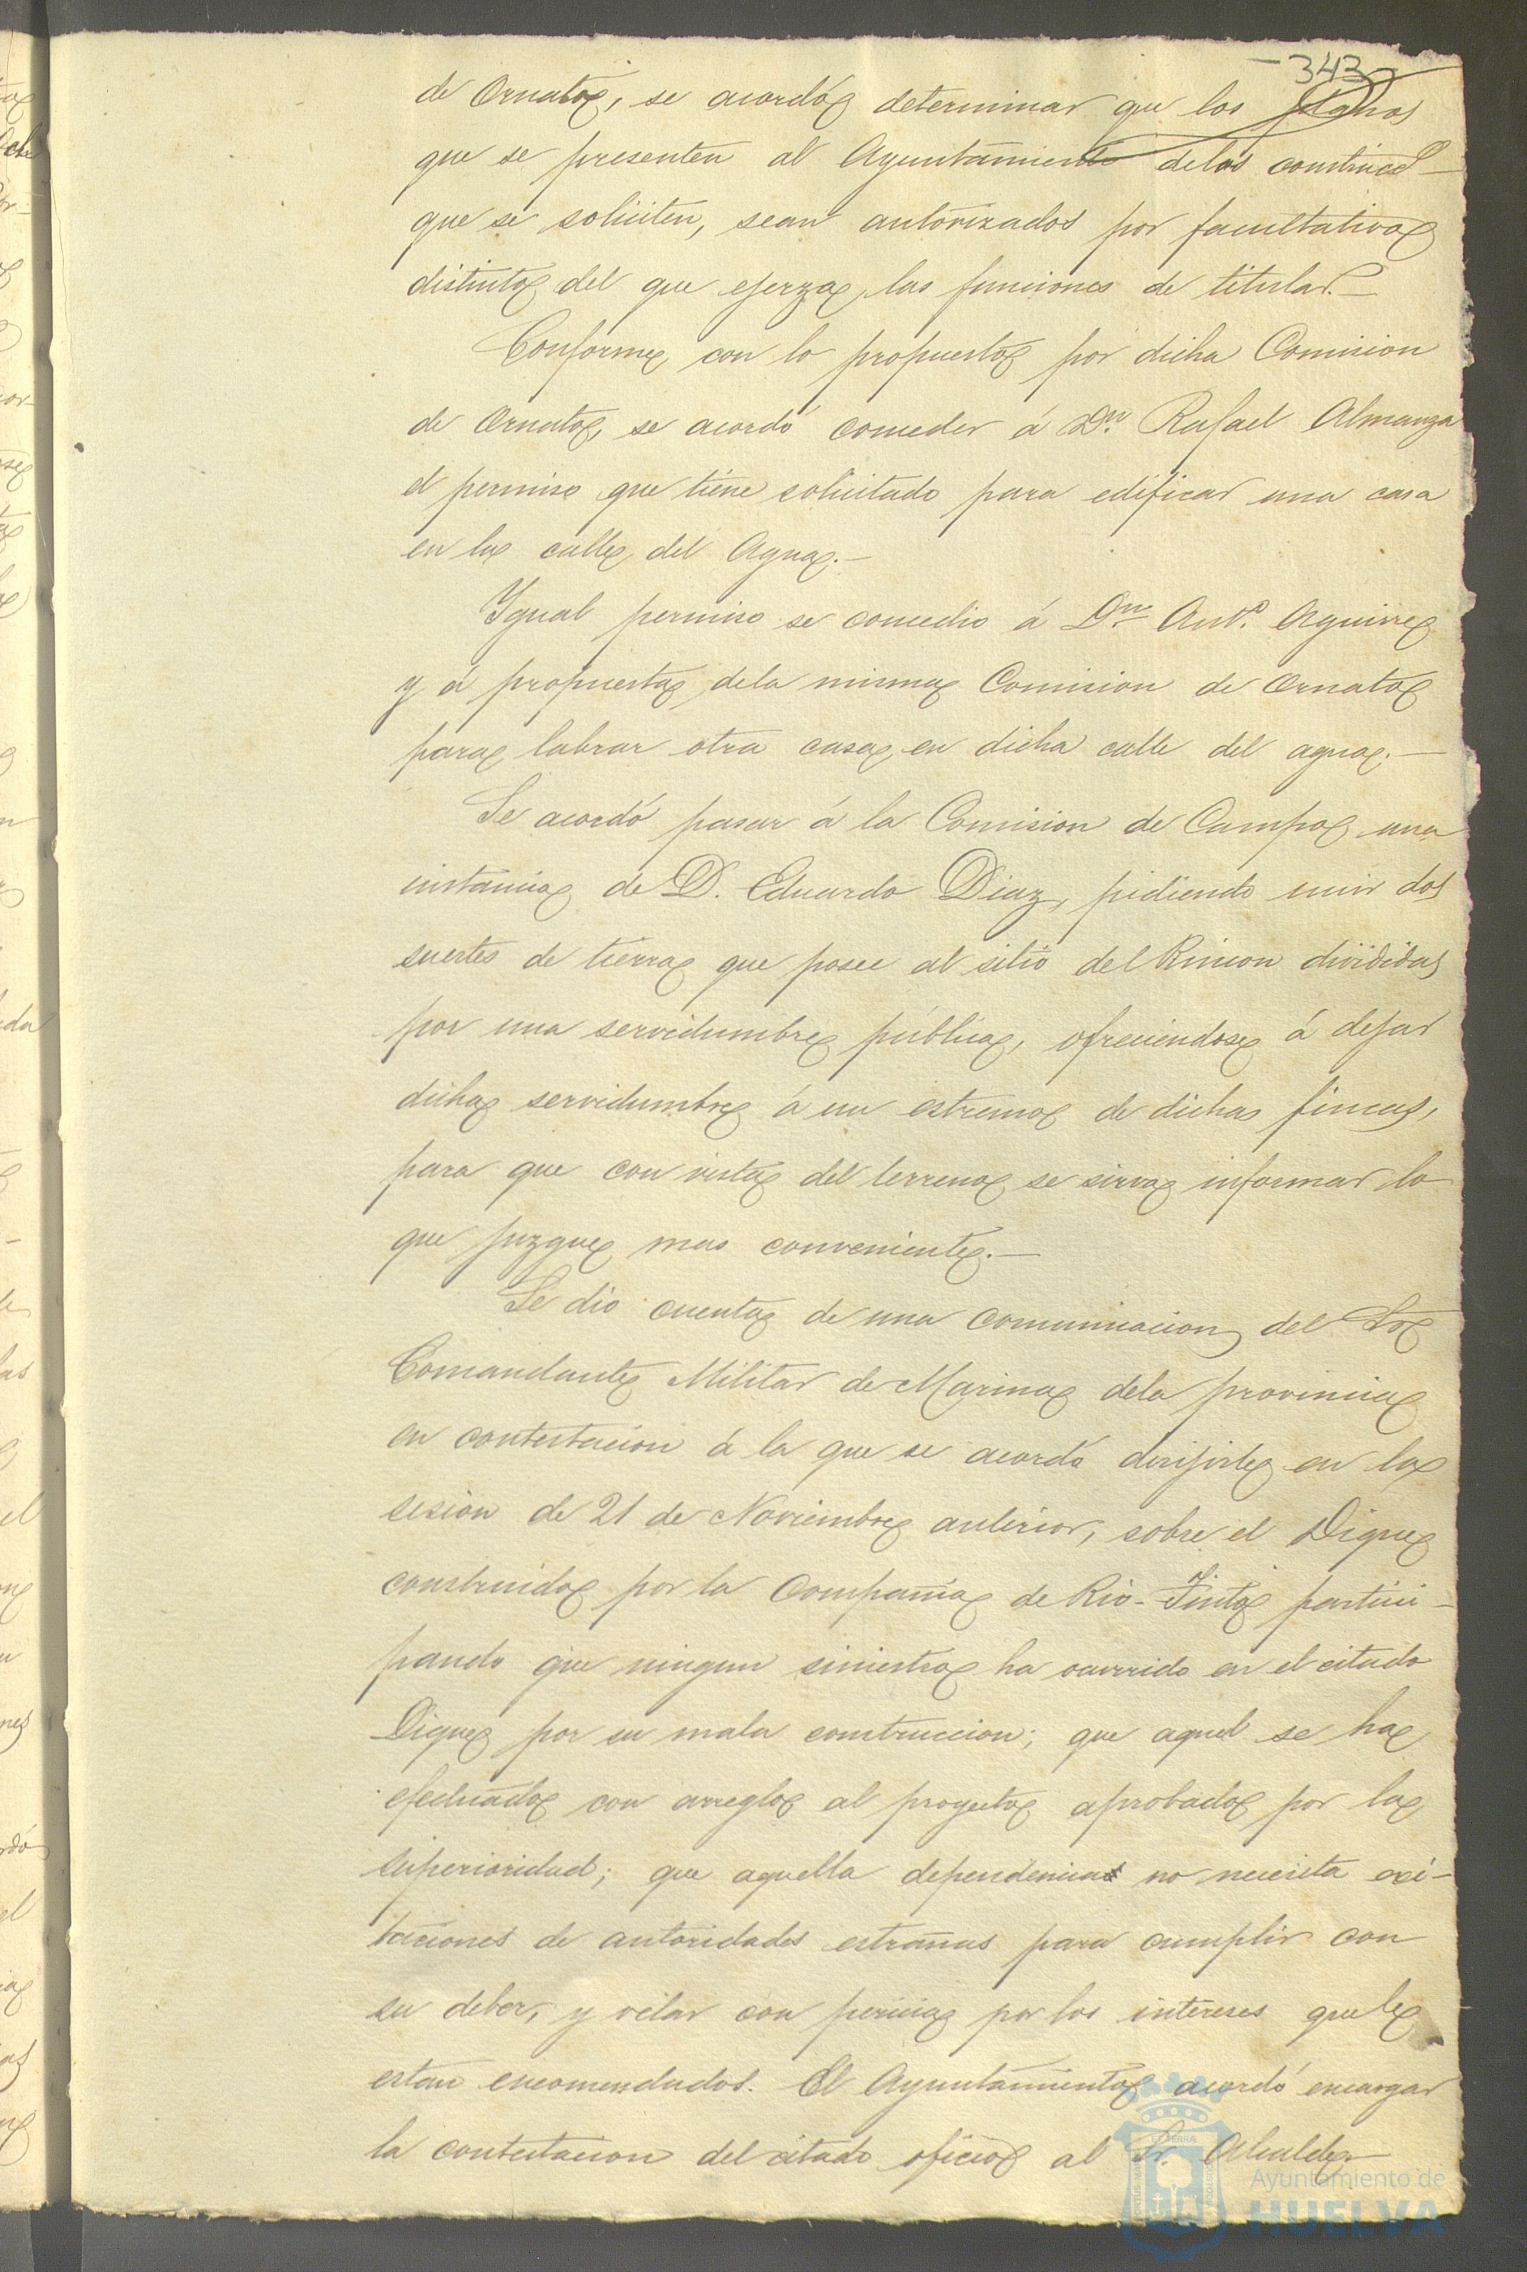 343
de Ornato, se acordó determinar que los planos
que se presenten al Ayuntamiento delas construcs
que se soliciten, sean autorizados por facultativo
distinto del que ejerza las funciones de titular.—
Conforme con lo propuesto por dicha Comision
de Ornato, se acordó conceder á Dn. Rafael Almanza
el permiso que tiene solicitado para edificar una casa
en la calle del Agua.—
Ygual permiso se concedio á Dn. Anto. Aguirre
y á propuesta dela misma Comision de Ornato
para labrar otra casa en dicha calle del agua.—
Se acordó pasar á la Comision de Campo una
instancia de D. Eduardo Diaz, pidiendo unir dos
suertes de tierra que posee al sitio del Rincon divididas
por una servidumbre pública, ofreciendose á dejar
dicha servidumbre á un estremo de dichas fincas,
para que con vista del terreno se sirva informar lo
que juzgue mas conveniente.—
Se dio cuenta de una comunicacion del Sor
Comandante Militar de Marina dela provincia
en contestacion á la que se acordó dirijirle en la
sesion de 21 de Noviembre anterior, sobre el Dique
construido por la Compañia de Rio-Tinto partici-
pando que ningun siniestro ha ocurrido en el citado
Dique por su mala construccion; que aquel se ha
efectuado con arreglo al proyecto aprobado por la
superioridad; que aquella dependencia no necesita exi-
taciones de autoridades estrañas para cumplir con
su deber, y velar con pericia por los intereses que le
estan encomendados. El Ayuntamiento acordó encargar
la contestacion del citado oficio al Sr. Alcalde.—
Ayuntamiento de
HUELVA